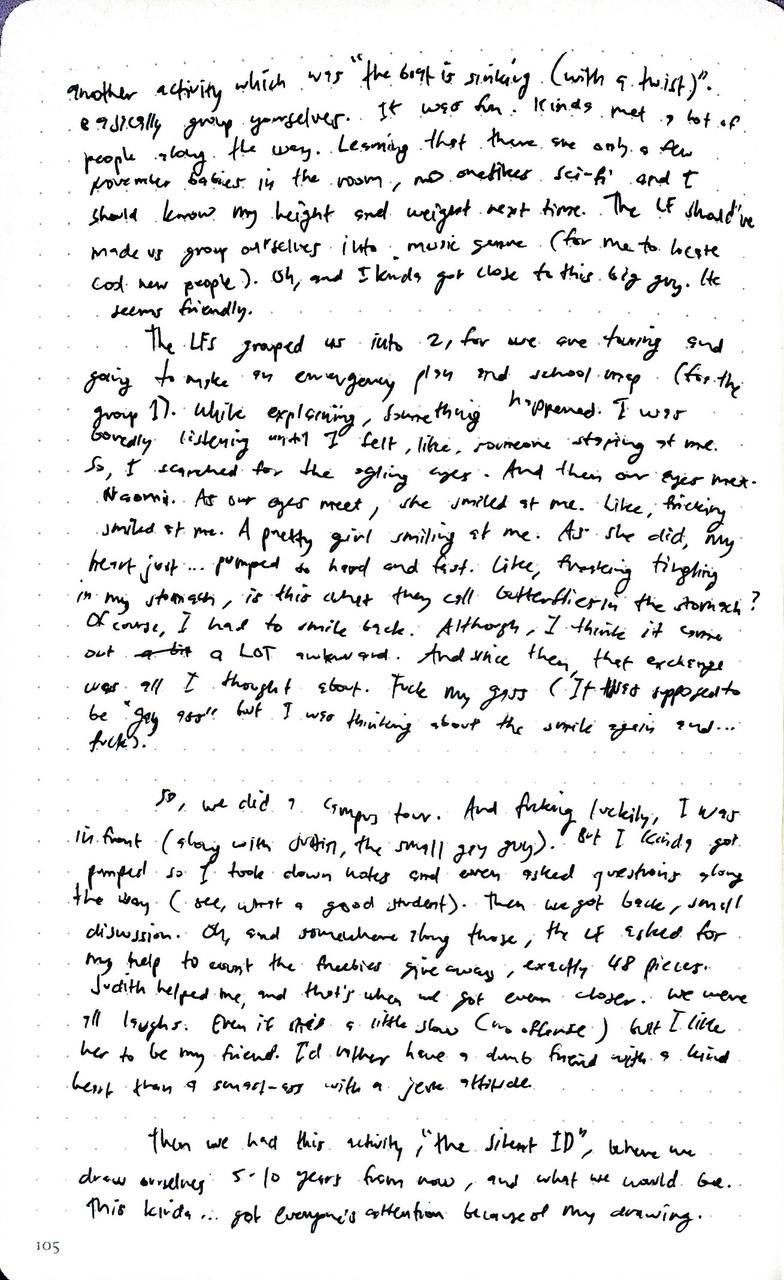 another activity which was "the boat is sinking (with a twist)".
Basically group yourselves. It was fun. Kinda met a lot of
people along the way. Learning that there are only a few
November babies in the room, no one likes sci-fi and I
should know my height and weight next time. The LF should've
made us group ourselves into music genre (for me to locate
cool new people). Oh, and I kinda got close to this big guy. He
seems friendly.
The LFs grouped us into 2, for we are touring and
going to make an emergency plan and school map (for the
group 1). While explaining, something happened. I was
boredly listening until I felt, like, someone staring at me.
So, I searched for the ogling eyes. And then our eyes met.
Naomi. As our eyes meet, she smiled at me. Like, fricking
smiled at me. A pretty girl smiling at me. As she did, my
heart just... pumped so hard and fast. Like, freaking tingling
in my stomach, is this what they call butterflies in the stomach?
Of course, I had to smile back. Although, I think it came
out a bit a LOT awkward. And since then, that exchange
was all I thought about. Fuck my gass (It was supposed to
be "gay ass" but I was thinking about the smile again and...
fuck).
So, we did a campus tour. And fucking luckily, I was
in front (along with Justin, the small gay guy). But I kinda got
pumped so I took down notes and even asked questions along
the way (see, what a good student). Then we got back, small
discussion. Oh, and somewhere along those, the LF asked for
my help to count the freebies giveaway, exactly 48 pieces.
Judith helped me, and that's when we got even closer. We were
all laughs. Even if she's a little slow (no offense) but I like
her to be my friend. I'd rather have a dumb friend with a kind
heart than a smart-ass with a jerk attitude.
Then we had this activity, "the silent ID", where we
draw ourselves 5-10 years from now, and what we would be.
This kinda... got everyone's attention because of my drawing.
105